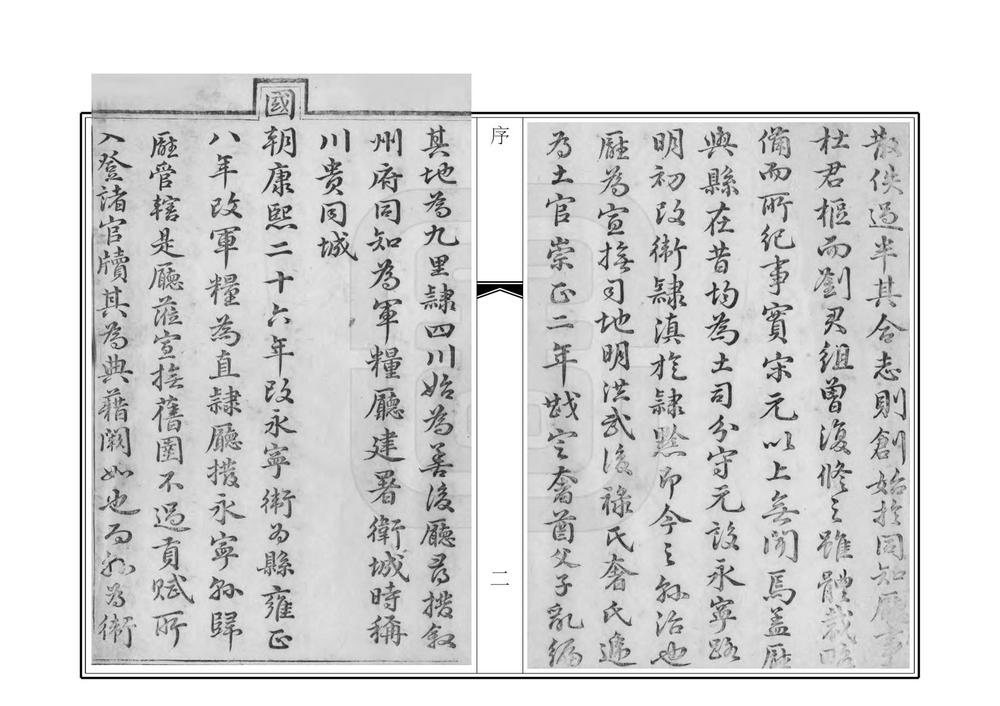 散佚過半其合志則創始於同知廳事
杜君樞而劉君組曽復修之雖體裁略
備而所紀事實宋元以上無聞焉盖廳
與縣在昔均為土司分守元設永寧路
明初改衛隸滇旋隸黔即今之縣治也
廳為宣撫司地明洪武後祿氏奢氏遞
為土官崇正二年戡定奢酋父子亂編
序
二
其地為九里隸四川始為善後廳尋撥敘
州府同知為軍糧廳建署衛城時稱
川貴同城
國朝康熙二十六年改永寧衛為縣雍正
八年改軍糧為直隸廳撥永寧縣歸
廳管轄是廳蒞宣撫舊圉不過貢賦所
入登諸官牘其為典藉闕如也而縣為衛